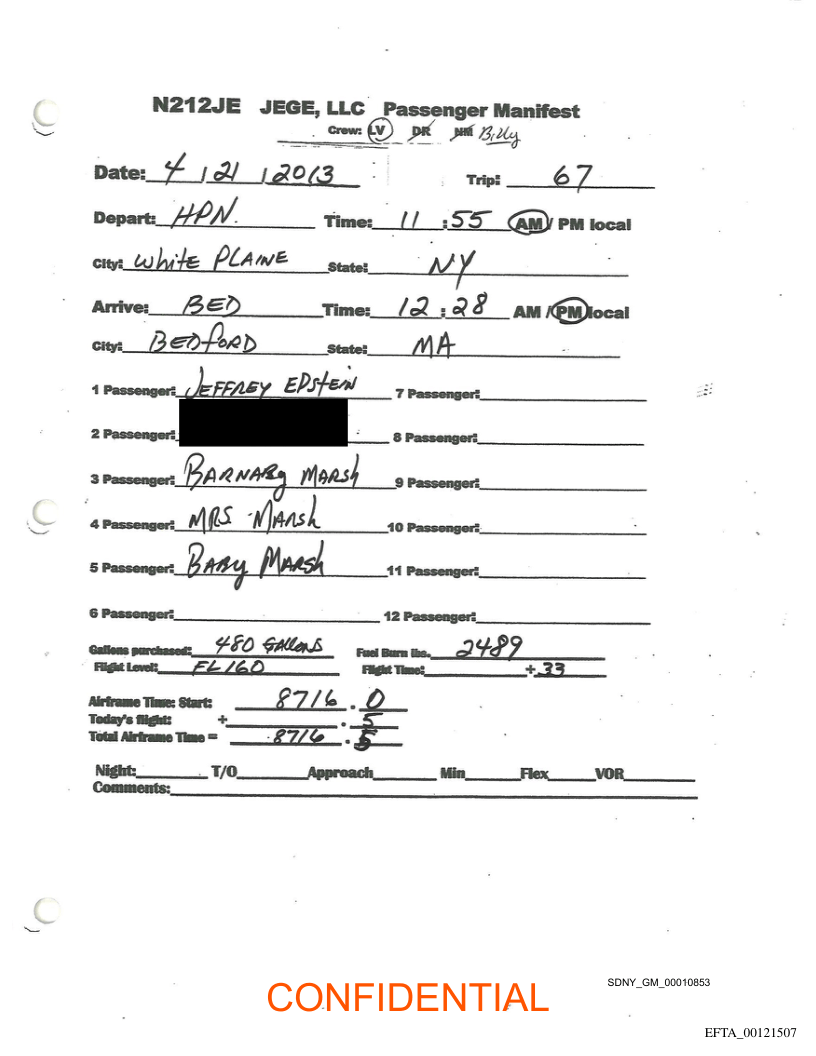 N212JE JEGE, LLC Passenger Manifest
Crew: LV DR NM Billy
Date: 4 / 21 / 2013 Trip: 67
Depart: HPN Time: 11 : 55 AM / PM local
City: White PLAINE State: NY
Arrive: BED Time: 12 : 28 AM / PM local
City: BEDFORD State: MA
1 Passenger: JEFFREY EPStEiN 7 Passenger:
2 Passenger: 8 Passenger:
3 Passenger: BARNABy MARSh 9 Passenger:
4 Passenger: MRS. MARSh 10 Passenger:
5 Passenger: BABy MARSh 11 Passenger:
6 Passenger: 12 Passenger:
Gallons purchased: 480 GALLONS Fuel Burn lbs. 2489
Flight Level: FL160 Flight Time: + 33
Airframe Time: Start: 8716 . 0
Today's flight: + . 5
Total Airframe Time = 8716 . 5
Night: T/O Approach Min Flex VOR
Comments:
SDNY_GM_00010853
CONFIDENTIAL
EFTA_00121507